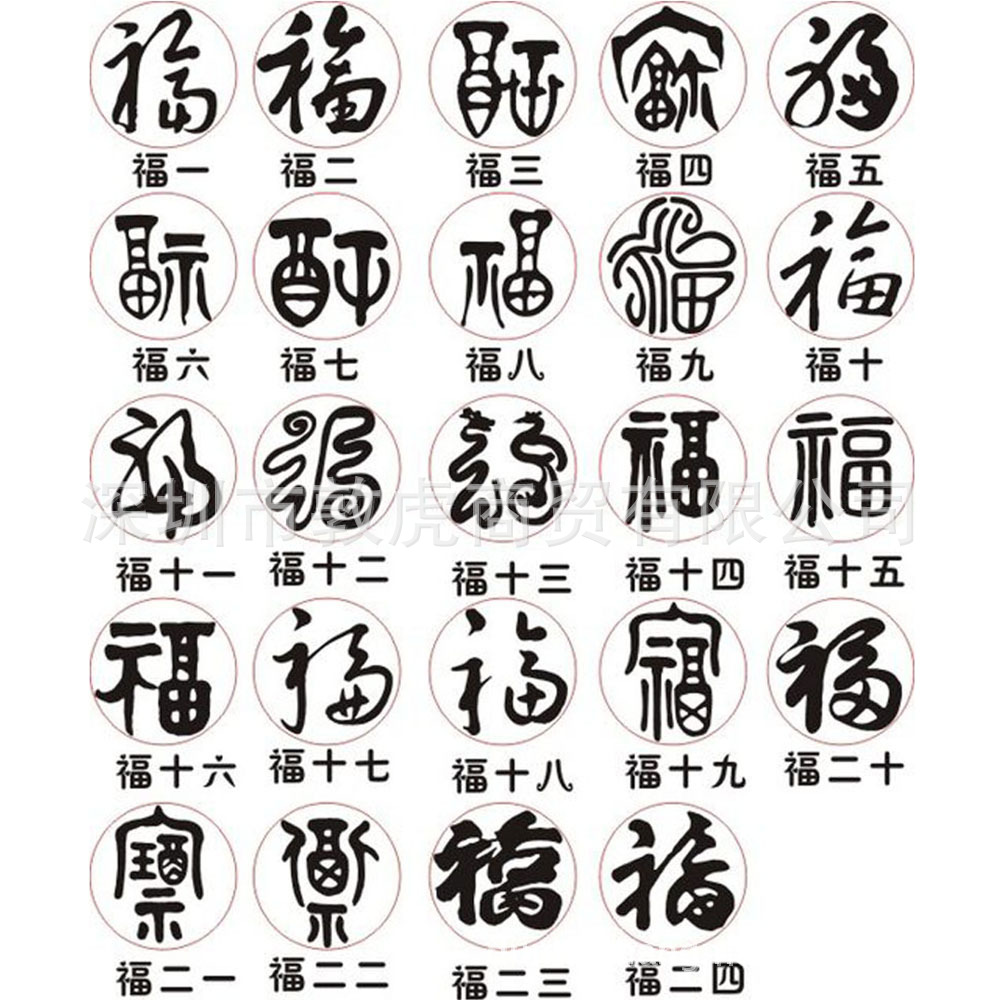 福 福 福 福 福
福一 福二 福三 福四 福五
福 福 福 福 福
福六 福七 福八 福九 福十
福 福 福 福 福
深圳市敦虎商贸有限公司
福十一 福十二 福十三 福十四 福十五
福 福 福 福 福
福十六 福十七 福十八 福十九 福二十
福 福 福 福
福二一 福二二 福二三 福二四